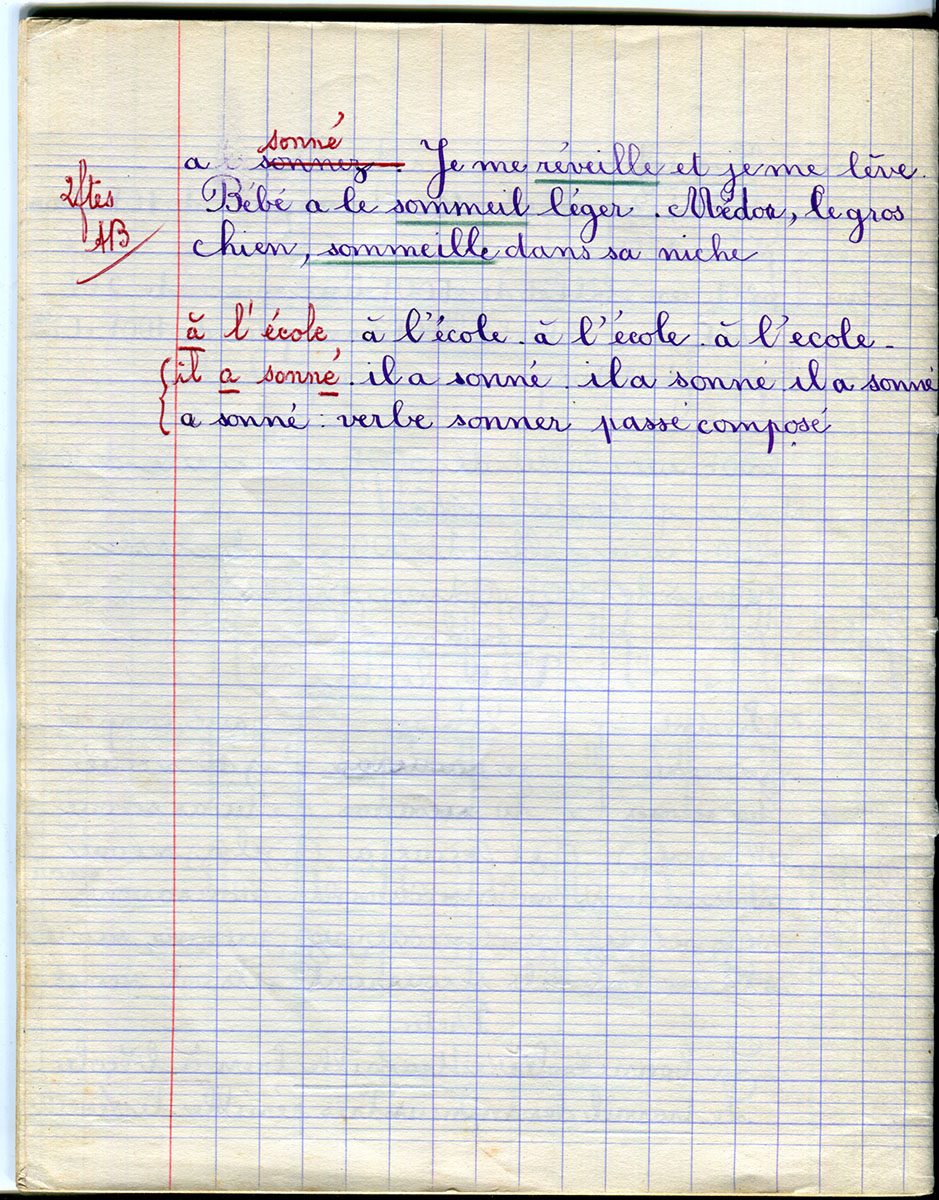 sonné
a sonnez. Je me réveille et je me lève.
2 ftes
Bébé a le sommeil léger. Médor, le gros
AB
chien, sommeille dans sa niche
à l'école, à l'école. à l'école. à l'ecole.
il a sonné. il a sonné. il a sonné il a sonné
a sonné : verbe sonner passé composé